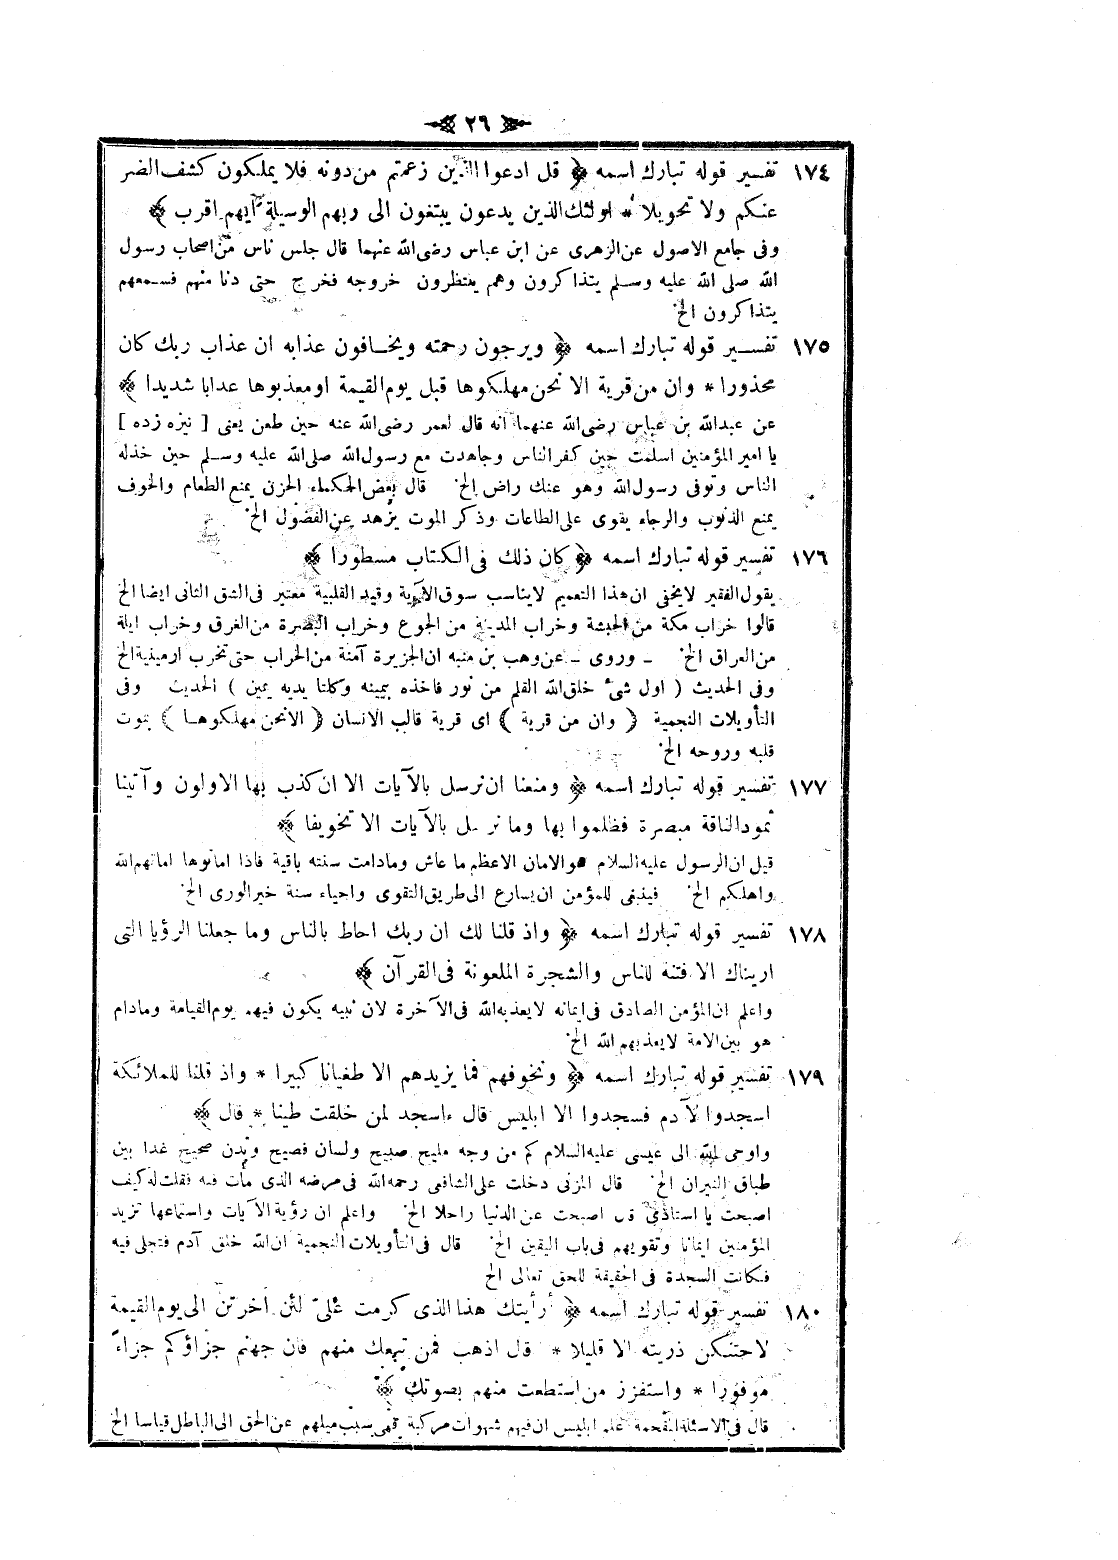 ٢٦
١٧٤ تفسير قوله تبارك اسمه ﴿ قل ادعوا الذين زعمتم من دونه فلا يملكون كشف الضر
عنكم ولا تحويلا * اولئك الذين يدعون يبتغون الى ربهم الوسيلة ايهم اقرب ﴾
وفى جامع الاصول عن الزهرى عن ابن عباس رضى الله عنهما قال جلس ناس من اصحاب رسول
الله صلى الله عليه وسلم يتذاكرون وهم ينتظرون خروجه فخرج حتى دنا منهم فسمعهم
يتذاكرون الخ
١٧٥ تفسير قوله تبارك اسمه ﴿ ويرجون رحمته ويخافون عذابه ان عذاب ربك كان
محذورا * وان من قرية الا نحن مهلكوها قبل يوم القيمة او معذبوها عذابا شديدا ﴾
عن عبدالله بن عباس رضى الله عنهما انه قال لعمر رضى الله عنه حين طعن يعنى [ نيزه زده ]
يا امير المؤمنين اسلمت حين كفر الناس وجاهدت مع رسول الله صلى الله عليه وسلم حين خذله
الناس وتوفى رسول الله وهو عنك راض الخ. قال بعض الحكماء الحزن يمنع الطعام والخوف
يمنع الذنوب والرجاء يقوى على الطاعات وذكر الموت يزهد عن الفضول الخ.
١٧٦ تفسير قوله تبارك اسمه ﴿ كان ذلك فى الكتاب مسطورا ﴾
يقول الفقير لا يخفى ان هذا التعميم لايناسب سوق الآية وقيد القلبية معتبر فى الشق الثانى ايضا الخ
قالوا خراب مكة من الحبشة وخراب المدينة من الجوع وخراب البصرة من الغرق وخراب ايلة
من العراق الخ. ـ وروى ـ عن وهب بن منبه ان الجزيرة آمنة من الخراب حتى تخرب ارمينية الخ
وفى الحديث ( اول شئ خلق الله القلم من نور فاخذه بيمينه وكلتا يديه يمين ) الحديث وفى
التأويلات النجمية ( وان من قرية ) اى قرية قالب الانسان ( الا نحن مهلكوها ) بموت
قلبه وروحه الخ.
١٧٧ تفسير قوله تبارك اسمه ﴿ ومنعنا ان نرسل بالآيات الا ان كذب بها الاولون وآتينا
ثمود الناقة مبصرة فظلموا بها وما نرسل بالآيات الا تخويفا ﴾
قيل ان الرسول عليه السلام هو الامان الاعظم ما عاش ومادامت سنته باقية فاذا اماتوها اماتهم الله
واهلكهم الخ. فينبغى للمؤمن ان يسارع الى طريق التقوى واحياء سنة خير الورى الخ.
١٧٨ تفسير قوله تبارك اسمه ﴿ واذ قلنا لك ان ربك احاط بالناس وما جعلنا الرؤيا التى
اريناك الا فتنة للناس والشجرة الملعونة فى القرآن ﴾
واعلم ان المؤمن الصادق فى ايمانه لا يعذبه الله فى الآخرة لان نبيه يكون فيهم يوم القيامة ومادام
هو بين الامة لايعذبهم الله الخ.
١٧٩ تفسير قوله تبارك اسمه ﴿ ونخوفهم فما يزيدهم الا طغيانا كبيرا * واذ قلنا للملائكة
اسجدوا لآدم فسجدوا الا ابليس قال ءاسجد لمن خلقت طينا * قال ﴾
واوحى الله الى عيسى عليه السلام كم من وجه مليح صبيح ولسان فصيح وبدن صحيح غدا بين
طباق النيران الخ. قال المزنى دخلت على الشافى رحمه الله فى مرضه الذى مات فيه فقلت له كيف
اصبحت يا استاذى قال اصبحت عن الدنيا راحلا الخ. واعلم ان رؤية الآيات واستماعها تزيد
المؤمنين ايمانا وتقويهم فى باب اليقين الخ. قال فى التأويلات النجمية ان الله خلق آدم فتجلى فيه
فكانت السجدة فى الحقيقة للحق تعالى الخ
١٨٠ تفسير قوله تبارك اسمه ﴿ أرأيتك هذا الذى كرمت علىّ لئن أخرتن الى يوم القيمة
لاحتنكن ذريته الا قليلا * قال اذهب فمن تبعك منهم فان جهنم جزاؤكم جزاءً
موفورا * واستفزز من استطعت منهم بصوتك ﴾
قال فى الاسئلة المقحمة علم ابليس ان فيهم شهوات مركبة فهى سبب ميلهم عن الحق الى الباطل قياسا الخ